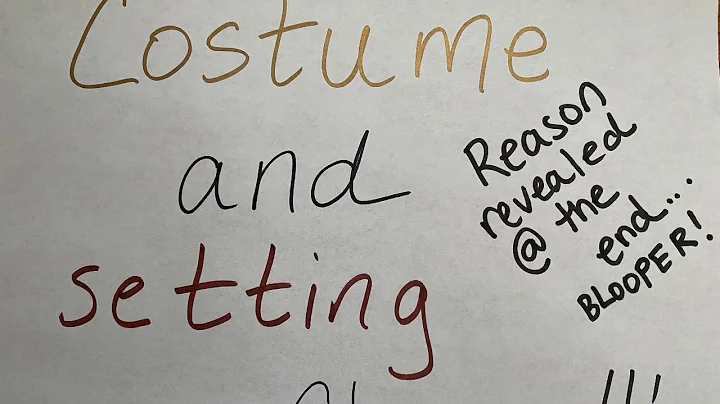 Costume
and
setting
Reason
revealed
@ the
end...
BLOOPER!
!!!